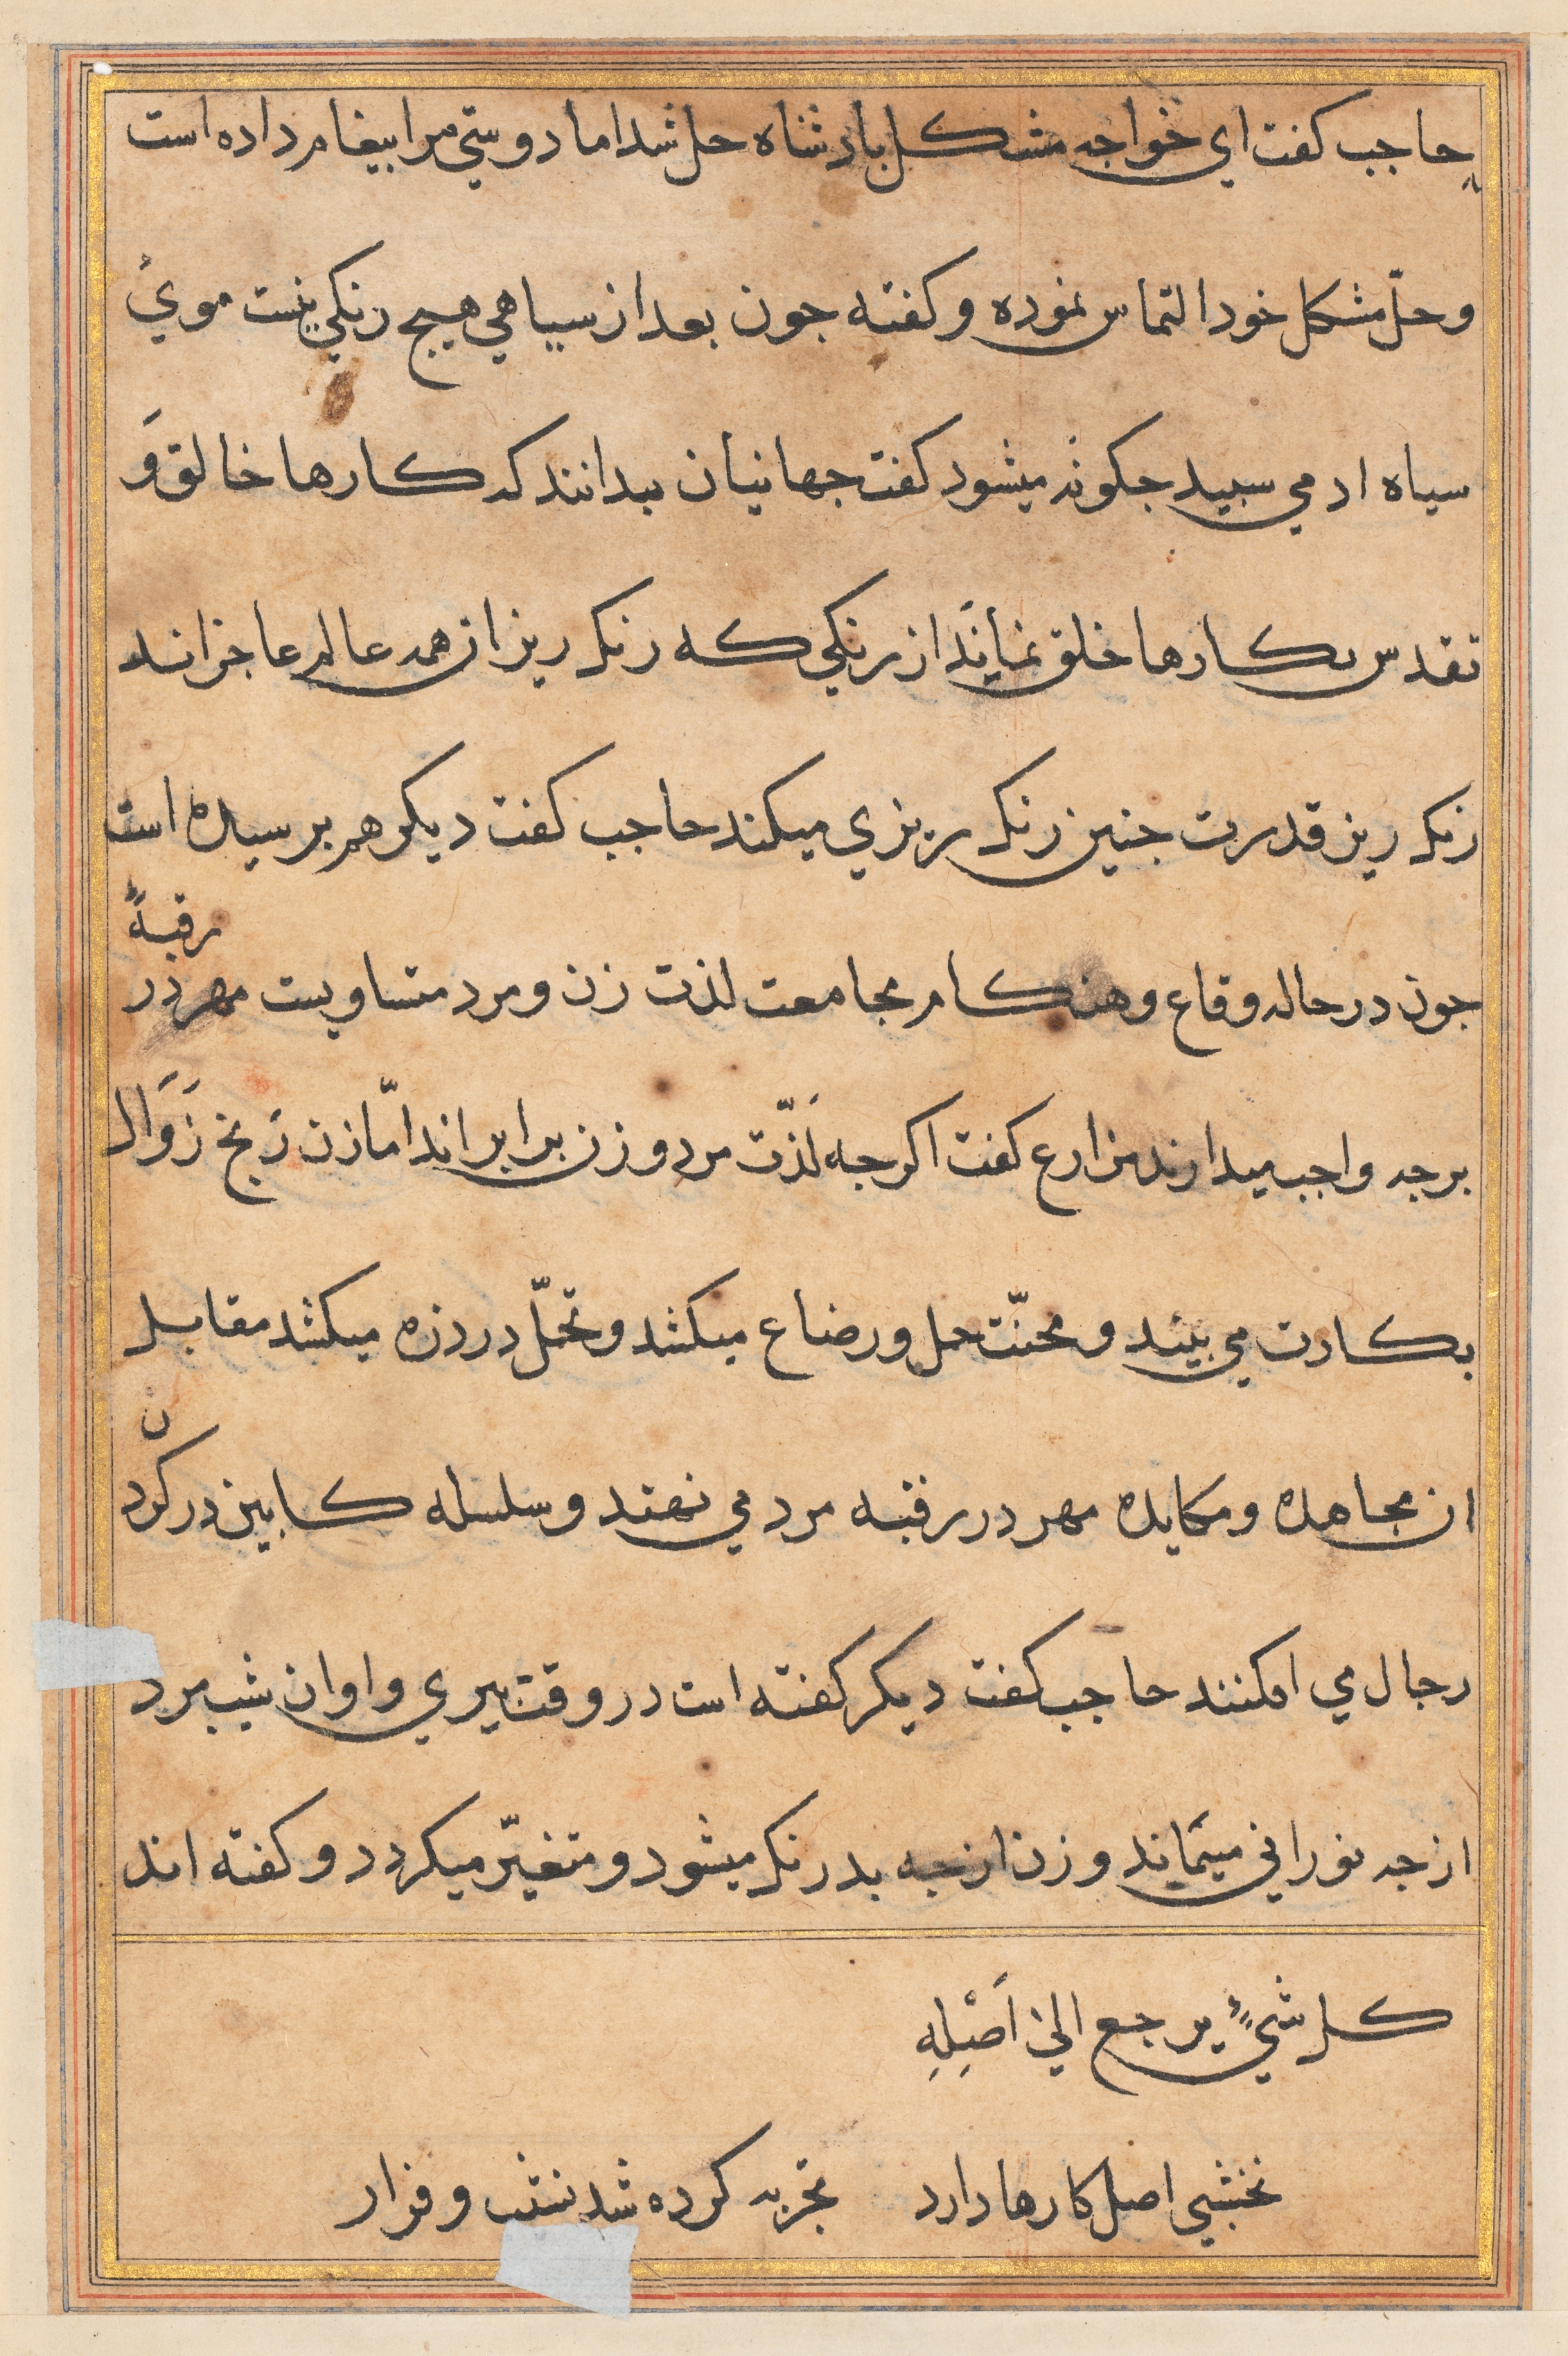 حاجب كفت اي خواجه مشكل بادشاه حل شد اما دوستي مرا بيغام داده است
و حلّ مشكل خود التماس نموده و كفته جون بعد از سياهي هيج رنكي نيست موي
سياه ادمي سبيد جكونه ميشود كفت جهانيان بدانند كه كارها خالق وَ
تقدس بكارها خلق نمانَد از رنكي كه رنك ريزان همه عالم عاجز اند
رنك ريز قدرت جنين رنك ريزي ميكند حاجب كفت ديكر هم برسيده است
جون در حاله وقاع و هنكام مجامعت لذت زن و مرد متساويست مهر در رقبهٔ
برجه واجب ميدارند مزارع كفت اكرجه لَذّت مرد و زن برابر اند امّا زن رَنج زَوَال
بكارت مي بيند و محنّت حمل و رضاع ميكشد و تحمّل درد زه ميكشد مقابل
ان مجاهده و مكايده مهر در رقبه مرد مي نهند و سلسله كابين در كردن
رجال مي افكنند حاجب كفت ديكر كفته است در وقت بيري و اوان شيب مرد
از جه نوراني ميماند و زن از جه بدرنك ميشود و متغيّر ميكردد و كفته اند
كل شيءٍ يرجع الى اَصْلِهِ
نخشبي اصل كارها دارد تجربه كرده شد نشيب و فراز